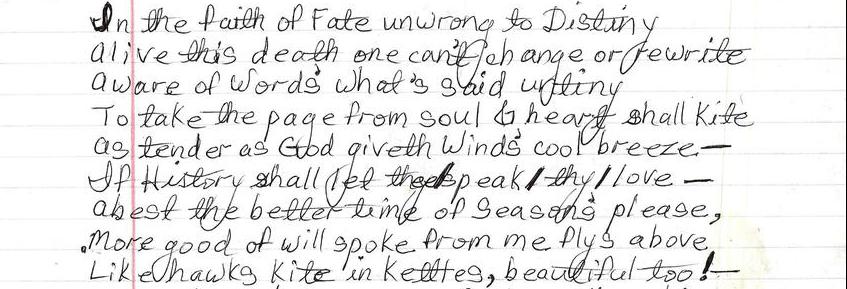 In the faith of Fate unwrong to Distiny
alive this death one can't change or rewrite
aware of Words what's said untiny
To take the page from soul & heart shall Kite
as tender as God giveth Wind's cool breeze—
If History shall let thee speak / thy / love —
abest the better time of Seasons please,
More good of will spoke from me flys above
Like hawks Kite in Kettles, beautiful too!—